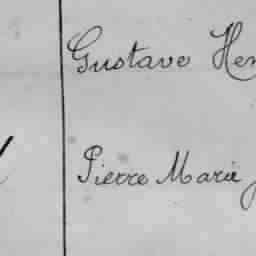 Gustave Hen
Pierre Marie